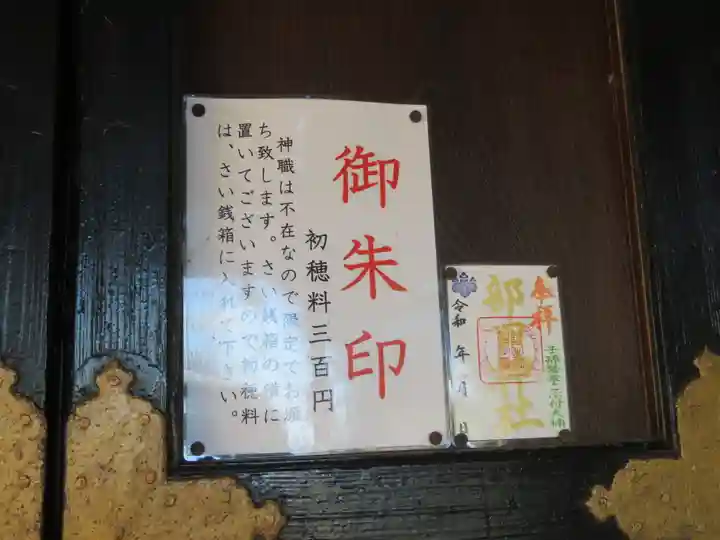 御朱印
初穂料三百円
神職は不在なので限定でお渡
ち致します。さい銭箱の借に
置いてございますので初穂料
は、さい銭箱に入れて下さい。
奉拝
部
社
令和 年 月 日